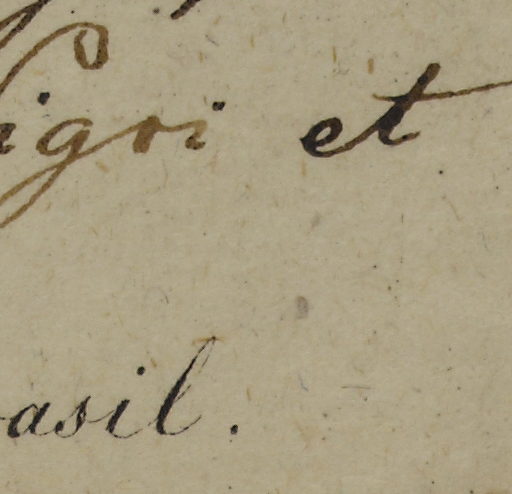 Nigri et
rasil.